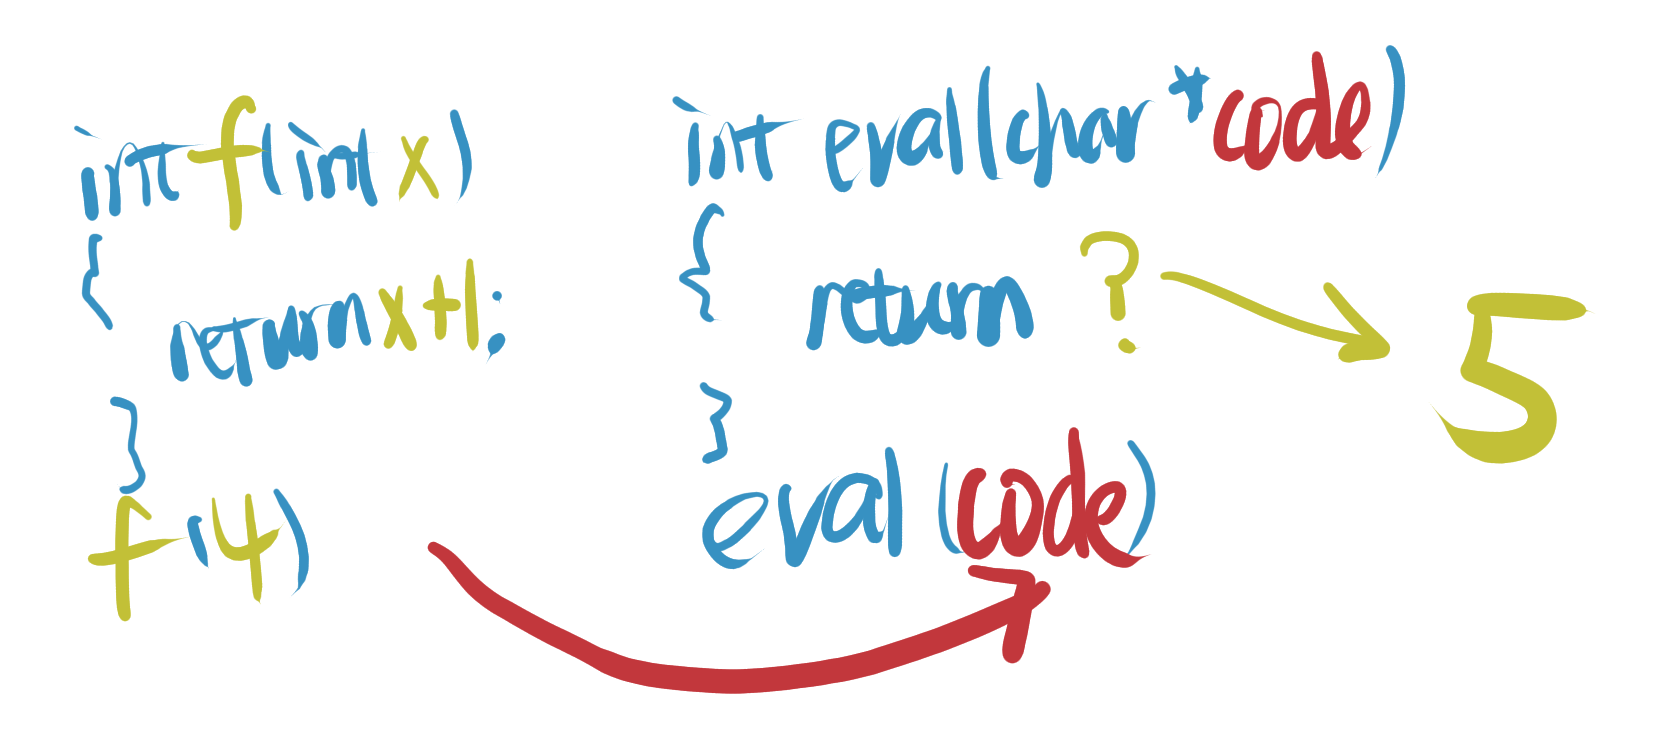 int f(int x)
{
return x+1;
}
f(4)
int eval(char *code)
{
return ?
}
eval(code)
5